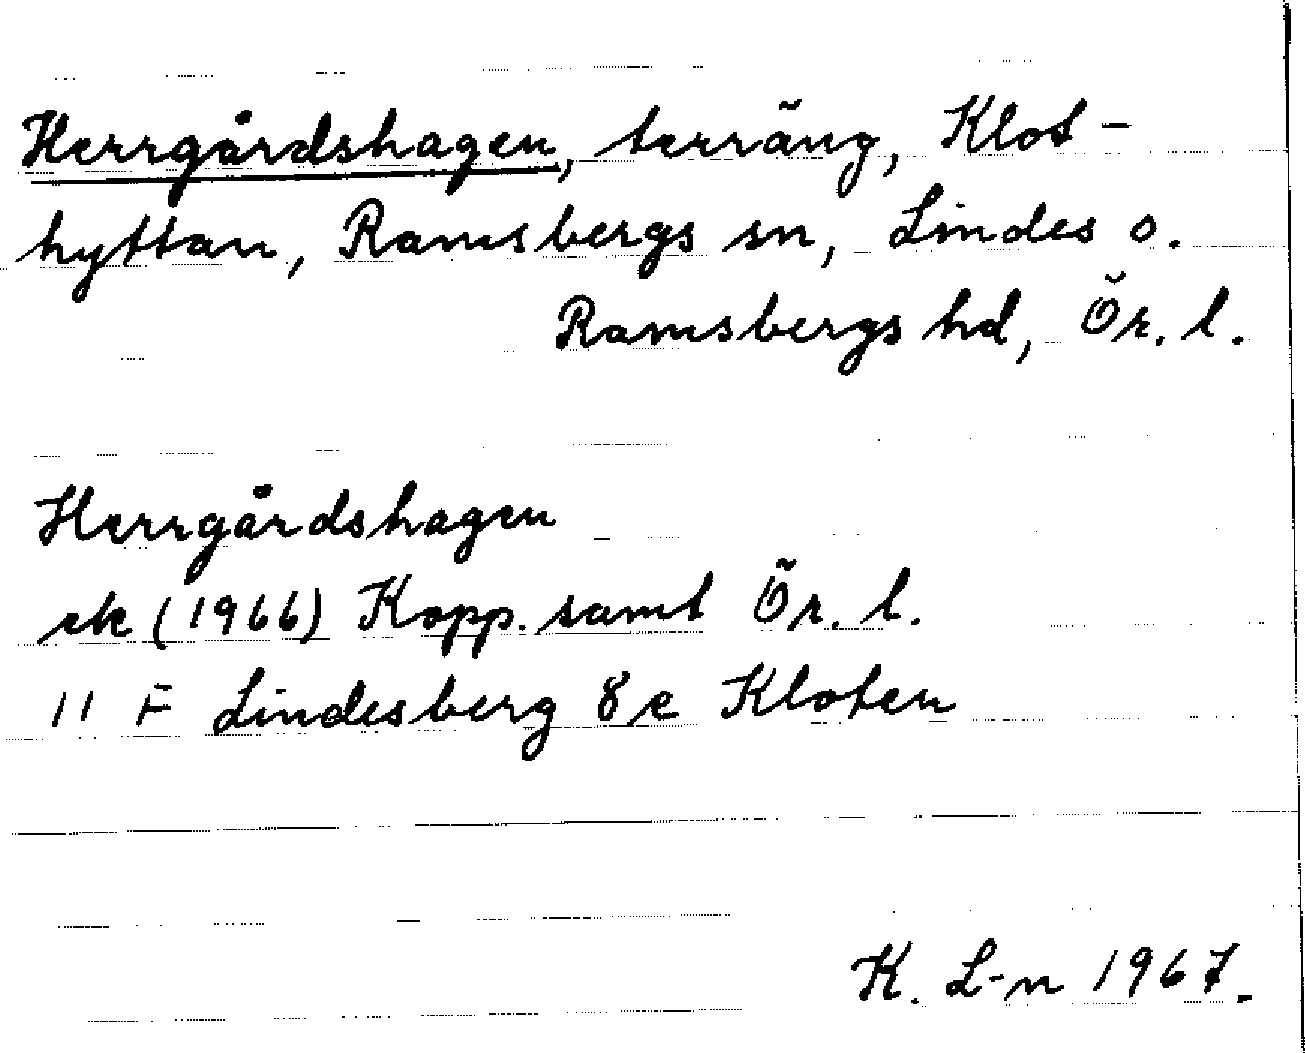 Herrgårdshagen, terräng, Klot-
hyttan, Ramsbergs sn, Lindes o.
Ramsbergs hd, Ör. l.
Herrgårdshagen
ek (1966) Kopp. samt Ör. l.
11 F Lindesberg 8e Kloten
K. L-n 1967.